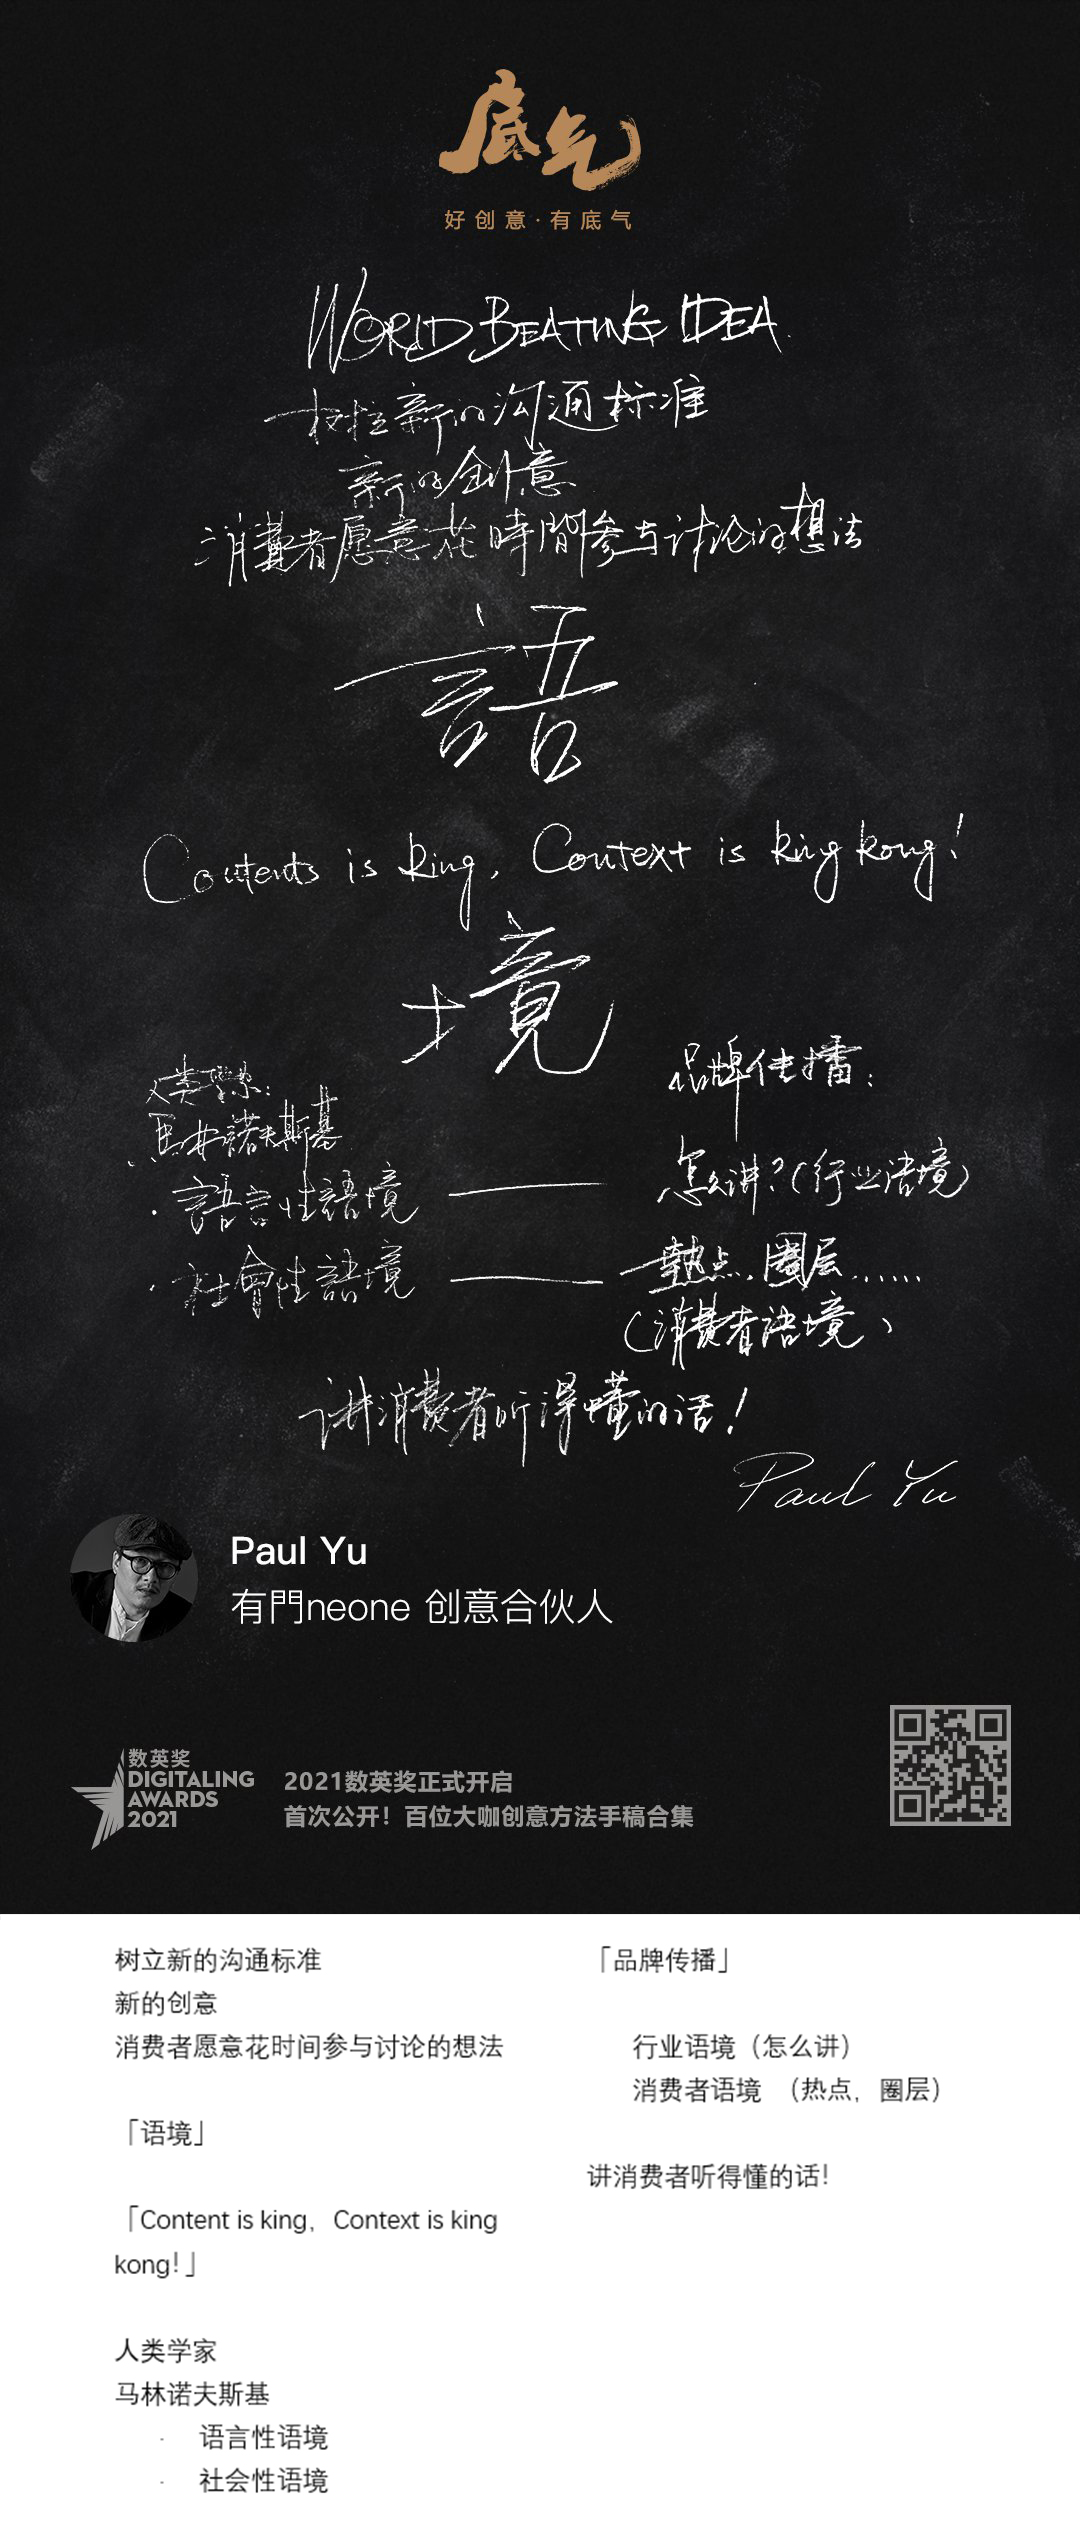 底气
好创意·有底气
WORLD BEATING IDEA.
一树立新的沟通标准
新的創意
消费者愿意花時間参与讨论的想法
語
Contents is king, Context is king kong!
境
人类学家:
馬林諾夫斯基
· 語言性語境
· 社會性語境
品牌传播:
怎么讲?(行业语境)
一熱点、圈层……
(消费者语境)
讲消费者听得懂的话!
Paul Yu
Paul Yu
有門neone 创意合伙人
数英奖
DIGITALING
AWARDS
2021
2021数英奖正式开启
首次公开！百位大咖创意方法手稿合集
树立新的沟通标准
新的创意
消费者愿意花时间参与讨论的想法
「语境」
「Content is king，Context is king
kong!」
人类学家
马林诺夫斯基
· 语言性语境
· 社会性语境
「品牌传播」
行业语境（怎么讲）
消费者语境 （热点，圈层）
讲消费者听得懂的话!